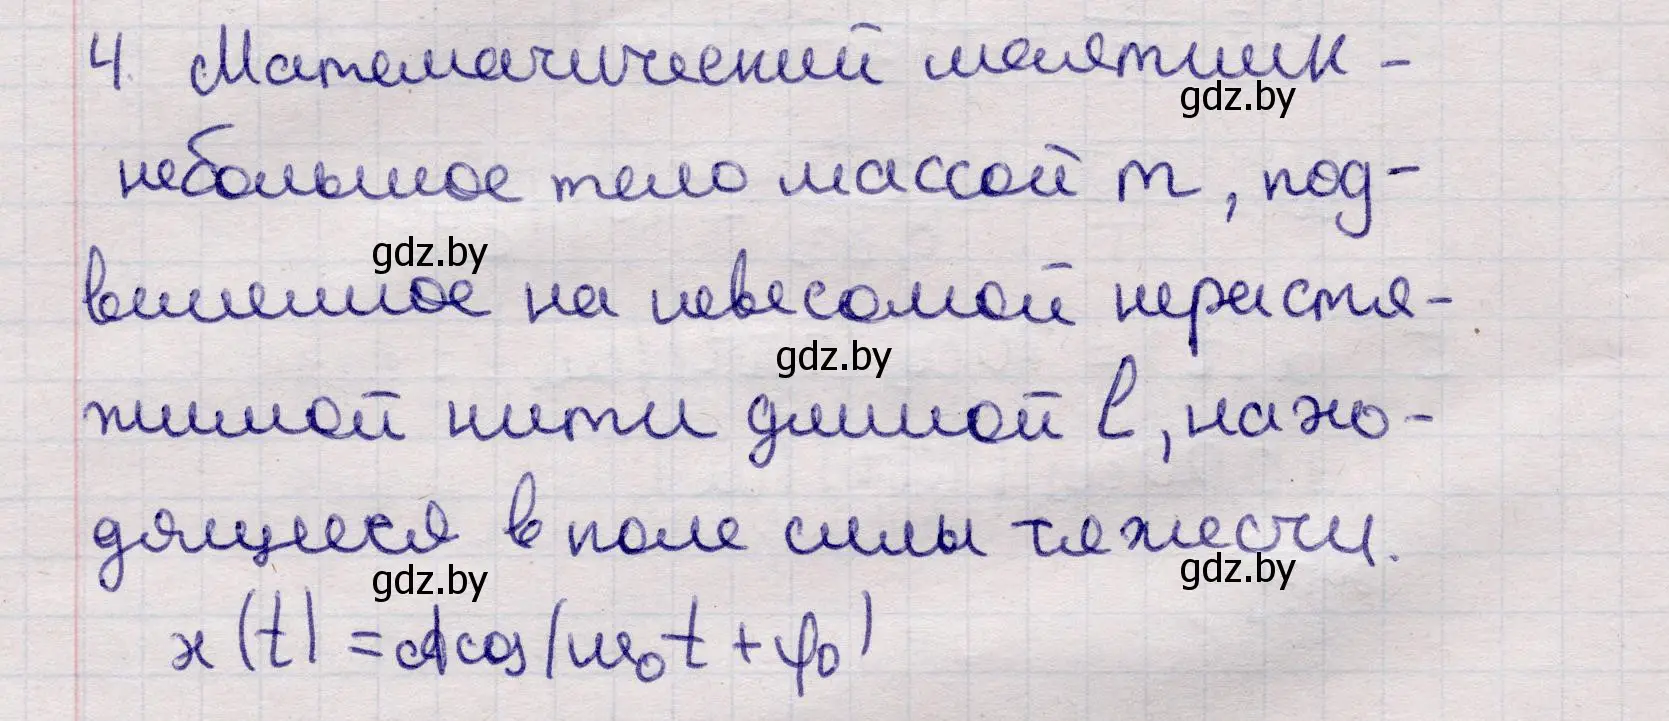 4. Математический маятник -
gdz.by
небольшое тело массой m, под-
gdz.by
вешенное на невесомой нерастя-
gdz.by
жимой нити длиной l, нахо-
дящееся в поле силы тяжести.
gdz.by gdz.by
x(t) = A cos(ω₀t + φ₀)